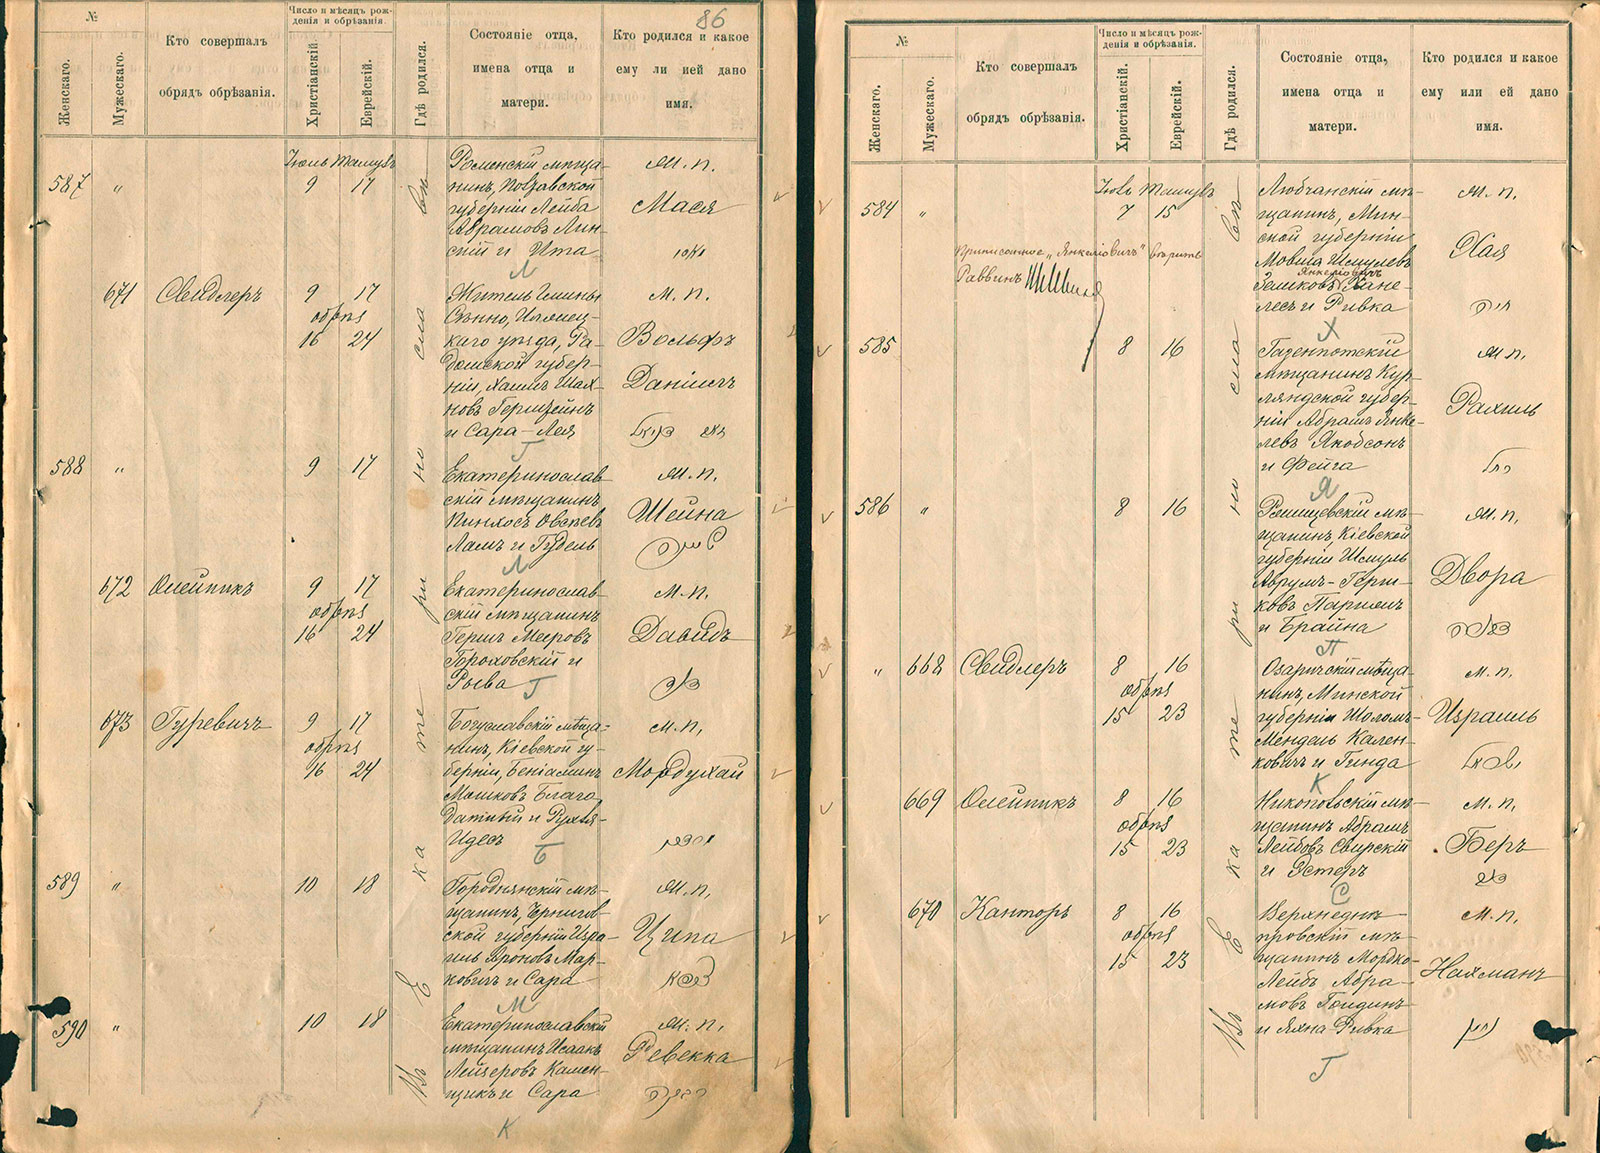 86
№
Женскаго.
Мужескаго.
Кто совершалъ
обрядъ обрѣзанія.
Число и мѣсяцъ рож-
денія и обрѣзанія.
Христіанскій.
Еврейскій.
Гдѣ родился.
Состояніе отца,
имена отца и
матери.
Кто родился и какое
ему ли ией дано
имя.
Въ Екатеринославѣ
Іюль Тамузъ
587 " 9 17
Роменскій мѣща-
нинъ, Полтавской
губерніи Лейба
Абрамовъ Лин-
скій и Ита
м. п.
Мася
Л
671 Свидлеръ 9 17
обрѣз
16 24
Житель Гмины
губер-
ніи, Хаимъ Шах-
новъ Герштейнъ
и Сара-Лея
м. п.
Вольфъ
Даніилъ
Г
588 " 9 17
Екатеринослав-
скій мѣщанинъ
Пинхосъ Овсѣевъ
Ламъ и Гудель
м. п.
Шейна
Л
672 Олейникъ 9 17
обрѣз
16 24
Екатеринослав-
скій мѣщанинъ
Гершъ Мееровъ
Гороховскій и
Рыва
м. п.
Давидъ
דוד
Г
673 Гуревичъ 9 17
обрѣз
16 24
Богуславскій мѣща-
нинъ, Кіевской гу-
берніи, Беніаминъ
Мошковъ Благо-
датный и Рухля-
Идесъ
м. п.
Мордухай
מרדכי
Б
589 " 10 18
Городнянскій мѣ-
щанинъ, Чернигов-
ской губерніи Изра-
иль Ароновъ Мар-
ковичъ и Сара
м. п.
Ципа
М
590 " 10 18
Екатеринославскій
мѣщанинъ Исаакъ
Лейзеровъ Камен-
щикъ и Сара
м. п.
Ревекка
К
№
Женскаго.
Мужескаго.
Кто совершалъ
обрядъ обрѣзанія.
Число и мѣсяцъ рож-
денія и обрѣзанія.
Христіанскій.
Еврейскій.
Гдѣ родился.
Состояніе отца,
имена отца и
матери.
Кто родился и какое
ему или ей дано
имя.
Въ Екатеринославѣ
Іюль Тамузъ
584 " 7 15
Приписанное „Янкеліовичъ" вѣрить
Раввинъ
Любчанскій мѣ-
щанинъ, Мин-
ской губерніи
Мовша Шмулевъ
Янкеліовичъ
и Ривка
м. п.
Хая
חיה
Х
585 8 16
Газенпотскій
мѣщанинъ Кур-
ляндской губер-
ніи Абрамъ Янке-
левъ Якобсонъ
и Фейга
м. п.
Рахиль
רחל
Я
586 " 8 16
мѣ-
щанинъ, Кіевской
губерніи Шмуль
Абрумъ-Герш-
ковъ
и Брайна
м. п.
Двора
П
" 668 Свидлеръ 8 16
обрѣз
15 23
Озаричскій мѣща-
нинъ, Минской
губерніи Шоломъ-
Мендель Кален-
ковичъ и Гинда
м. п.
Израиль
ישראל
К
669 Олейникъ 8 16
обрѣз
15 23
Никопольскій мѣ-
щанинъ Абрамъ
Лейбовъ Свирскій
и Эстеръ
м. п.
Беръ
С
670 Канторъ 8 16
обрѣз
15 23
Верхнеднѣ-
провскій мѣ-
щанинъ Мордхо-
Лейбъ Абра-
мовъ Гендинъ
и Яхна-Ривка
м. п.
Нахманъ
נחמן
Г